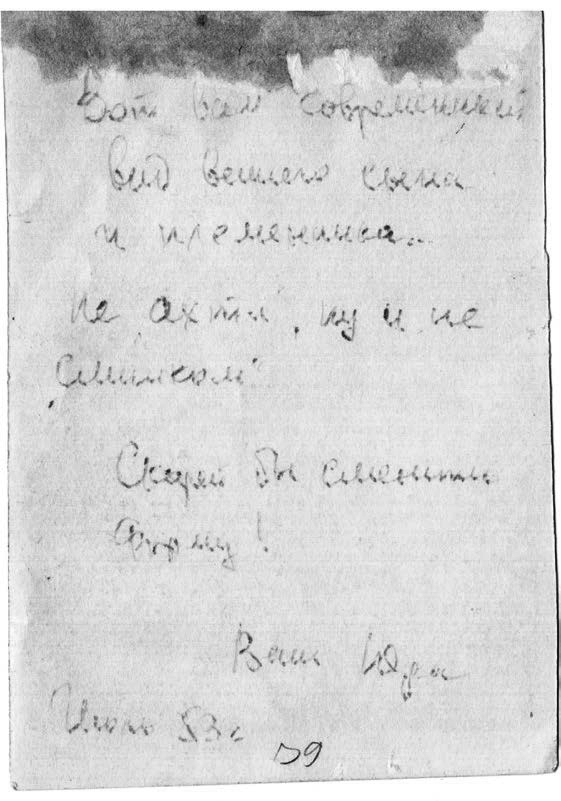 Вот вам современный
вид вашего сына
и племянника..
Не "ахти", ну и не
"слишком"
Скорей бы сменить
форму!
Ваш Юра
53 г
39